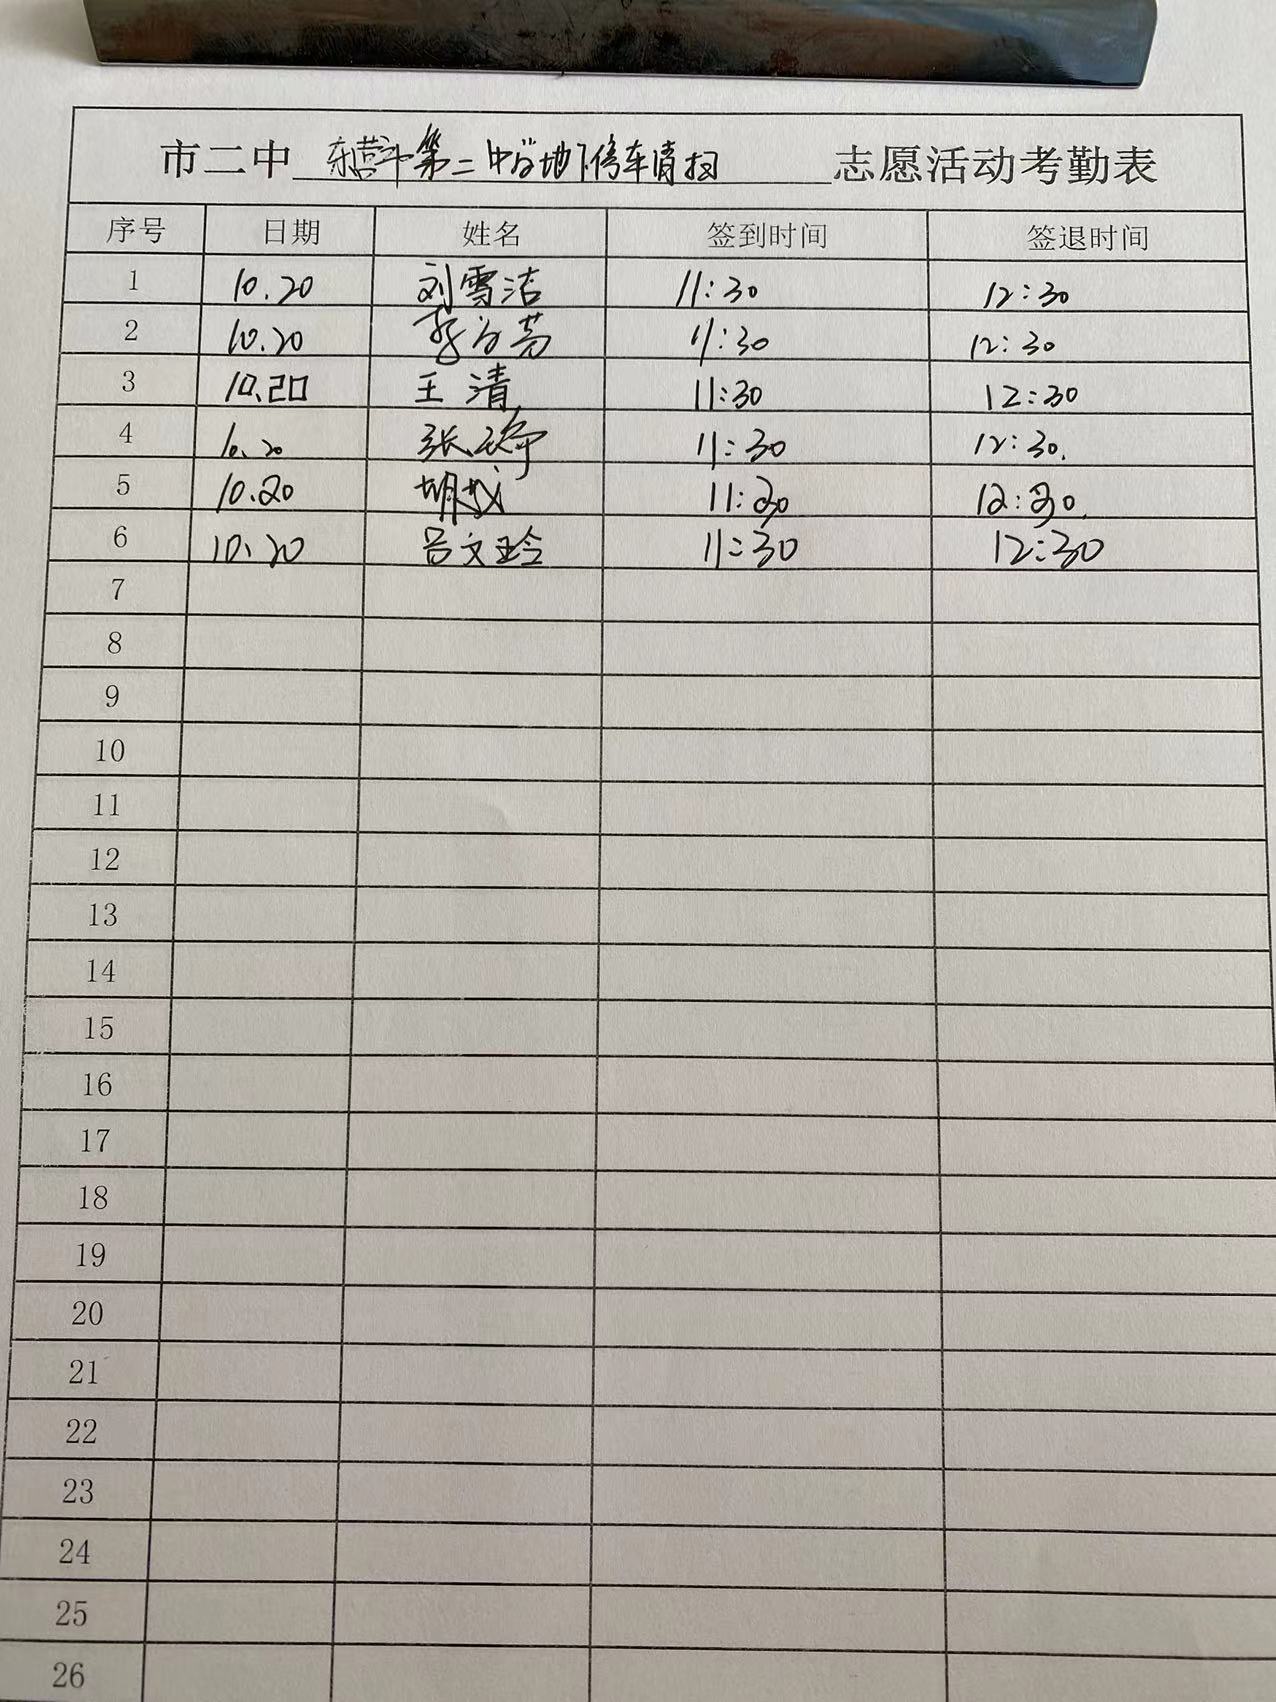 市二中 东营市第二中学地下停车清扫 志愿活动考勤表
序号 日期 姓名 签到时间 签退时间
1 10.20 刘雪洁 11:30 12:30
2 10.20 11:30 12:30
3 10.20 王清 11:30 12:30
4 10.20 张 11:30 12:30.
5 10.20 胡 11:30 12:30.
6 10.20 吕文玲 11:30 12:30
7
8
9
10
11
12
13
14
15
16
17
18
19
20
21
22
23
24
25
26